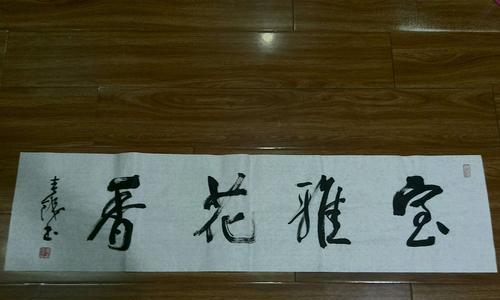 室雅花香